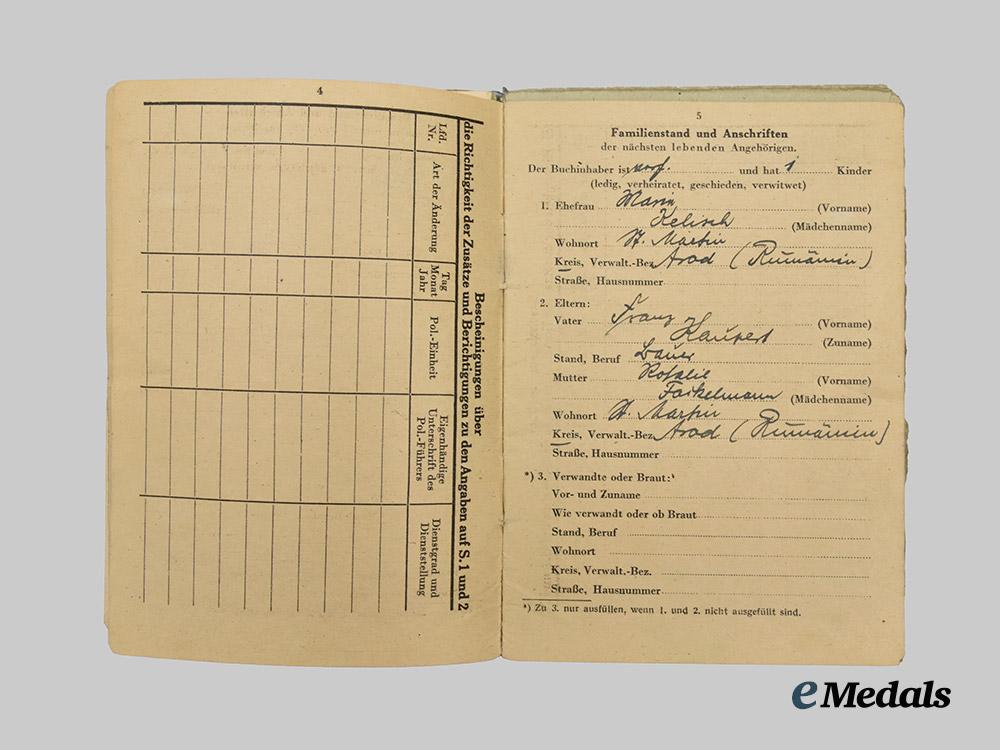 4
Bescheinigungen über
die Richtigkeit der Zusätze und Berichtigungen zu den Angaben auf S. 1 und 2
Lfd. Nr.
Art der Änderung
Tag Monat Jahr
Pol.-Einheit
Eigenhändige Unterschrift des Pol.-Führers
Dienstgrad und Dienststellung
5
Familienstand und Anschriften
der nächsten lebenden Angehörigen.
Der Buchinhaber ist und hat 1 Kinder
(ledig, verheiratet, geschieden, verwitwet)
1. Ehefrau Maria (Vorname)
Kelisch (Mädchenname)
Wohnort St. Martin
Kreis, Verwalt.-Bez. Arad (Rumänien)
Straße, Hausnummer
2. Eltern:
Vater Franz (Vorname)
Haupert (Zuname)
Stand, Beruf Bauer
Mutter Rosalie (Vorname)
Fackelmann (Mädchenname)
Wohnort St. Martin
Kreis, Verwalt.-Bez. Arad (Rumänien)
Straße, Hausnummer
*) 3. Verwandte oder Braut:*
Vor- und Zuname
Wie verwandt oder ob Braut
Stand, Beruf
Wohnort
Kreis, Verwalt.-Bez.
Straße, Hausnummer
*) Zu 3. nur ausfüllen, wenn 1. und 2. nicht ausgefüllt sind.
eMedals